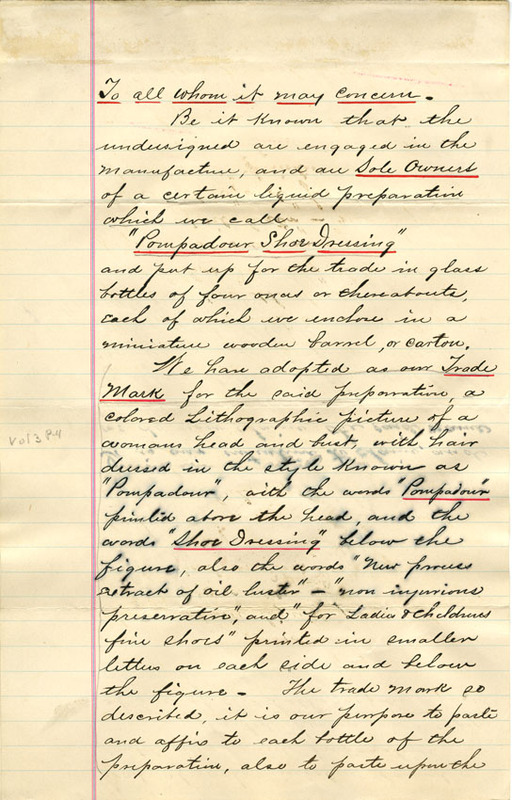 To all whom it may concern.
Be it Known that the
undersigned are engaged in the
manufacture, and are Sole Owners
of a certain liquid preparation
which we call
"Pompadour Shoe Dressing"
and put up for the trade in glass
bottles of four onces or thereabouts,
each of which we enclose in a
miniature wooden barrel, or carton.
We have adopted as our Trade
Mark for the said preparation, a
colored Lithographic picture of a
womans head and bust, with hair
dressed in the style known as
"Pompadour", with the words "Pompadour"
printed above the head, and the
words "Shoe Dressing" below the
figure, also the words "New process
extract of oil luster" - "non injurious
preservative", and "for Ladies & Childrens
fine shoes" printed in smaller
letters on each side and below
the figure - The trade mark so
described, it is our purpose to paste
and affix to each bottle of the
preparation, also to paste upon the
Vol 3 P4